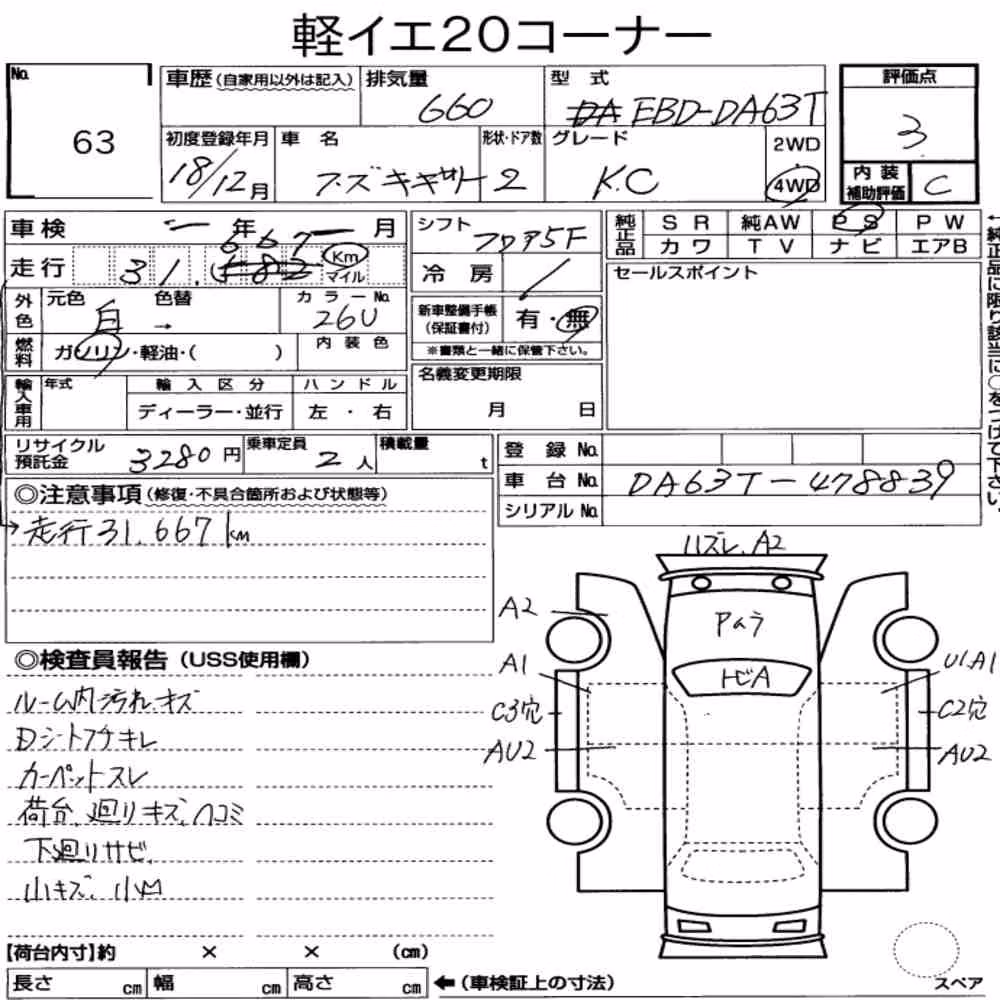 軽イエ20コーナー
No. 63
車歴(自家用以外は記入) 排気量 660 型式 EBD-DA63T 評価点 3
初度登録年月 18/12月 車名 スズキキャリー 形状・ドア数 2 グレード KC 2WD 4WD 内装補助評価 C
車検 年 月
走行 31,667 Km マイル
シフト フロア5F
冷房
純正品 SR 純AW PS PW
カワ TV ナビ エアB
←純正品に限り該当に○をつけて下さい。
セールスポイント
外色 元色 白 色替 → カラーNo. 26U
燃料 ガソリン・軽油・( ) 内装色
新車整備手帳(保証書付) 有・無
※書類と一緒に保管下さい。
輸入車用 年式 輸入区分 ハンドル
ディーラー・並行 左・右
名義変更期限
月 日
リサイクル預託金 3280円 乗車定員 2人 積載量 t
登録No.
車台No. DA63T-478839
シリアルNo.
◎注意事項(修復・不具合箇所および状態等)
走行31,667km
◎検査員報告(USS使用欄)
ルーム内汚れ、キズ
Dシートフチキレ
カーペットスレ
荷台、廻りキズ、ヘコミ
下廻りサビ
小キズ、小凹
ハズレ、A2
A2
Aムラ
A1
トビA
U1.A1
C3穴
C2穴
AU2
AU2
【荷台内寸】約 × × (cm)
長さ cm 幅 cm 高さ cm ←(車検証上の寸法)
スペア